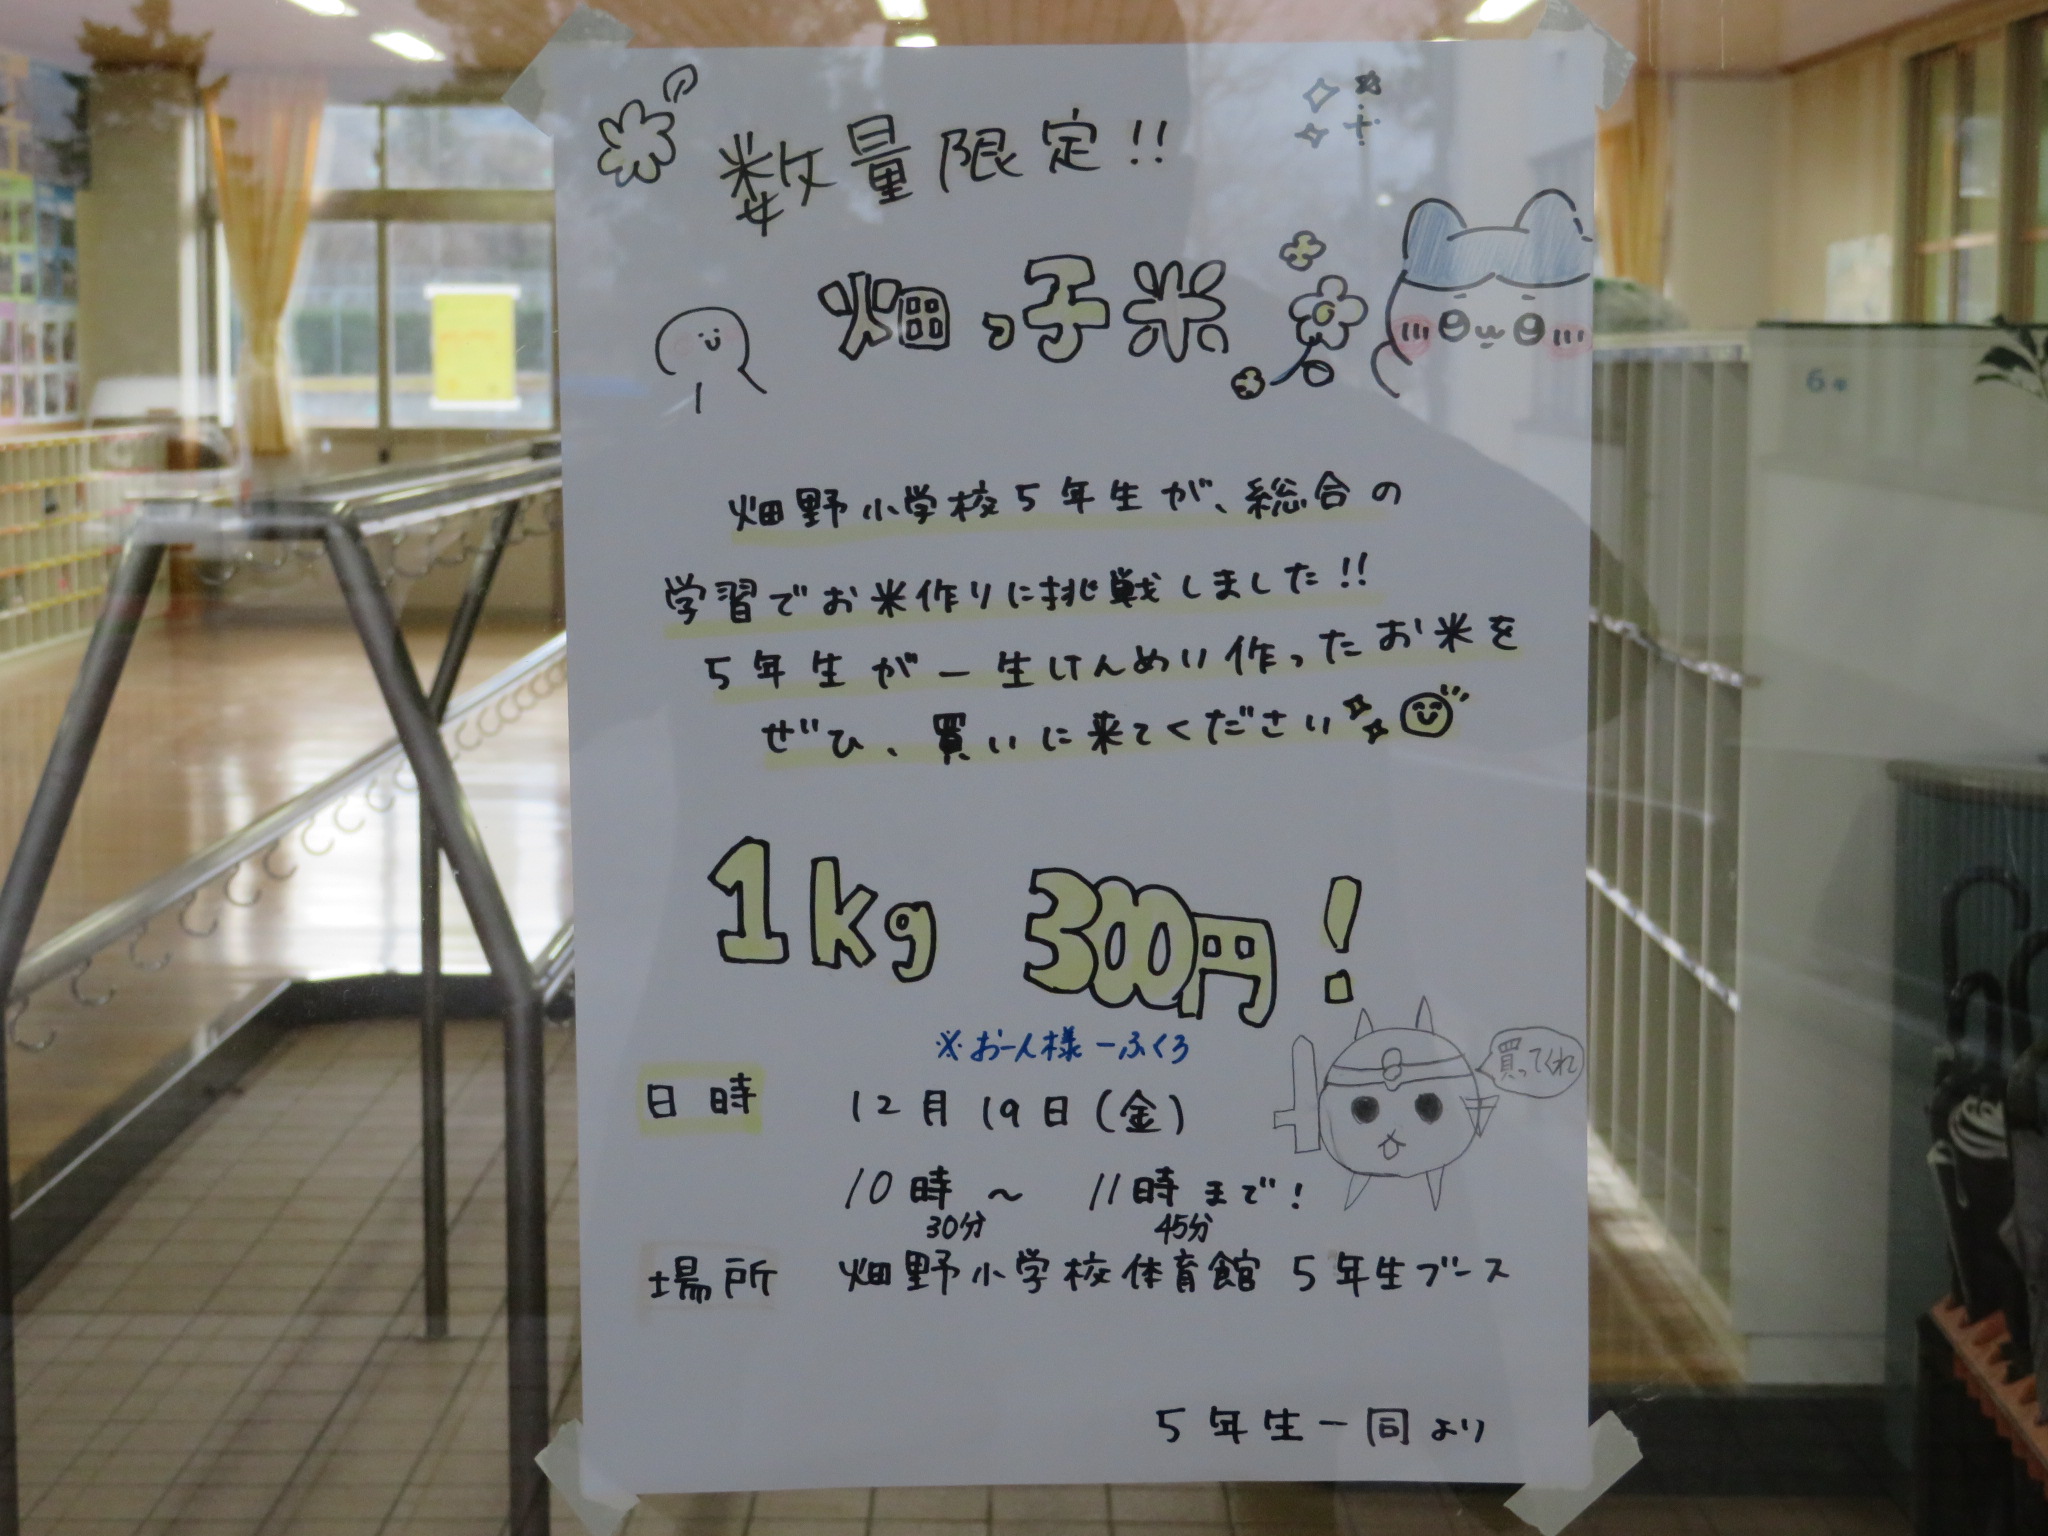 数量限定!!
畑っ子米
畑野小学校5年生が、総合の
学習でお米作りに挑戦しました!!
5年生が一生けんめい作ったお米を
ぜひ、買いに来てください
1kg 300円!
※お一人様一ふくろ
日時 12月19日(金)
買ってくれ
10時30分〜11時45分まで!
場所 畑野小学校体育館 5年生ブース
5年生一同より
6年